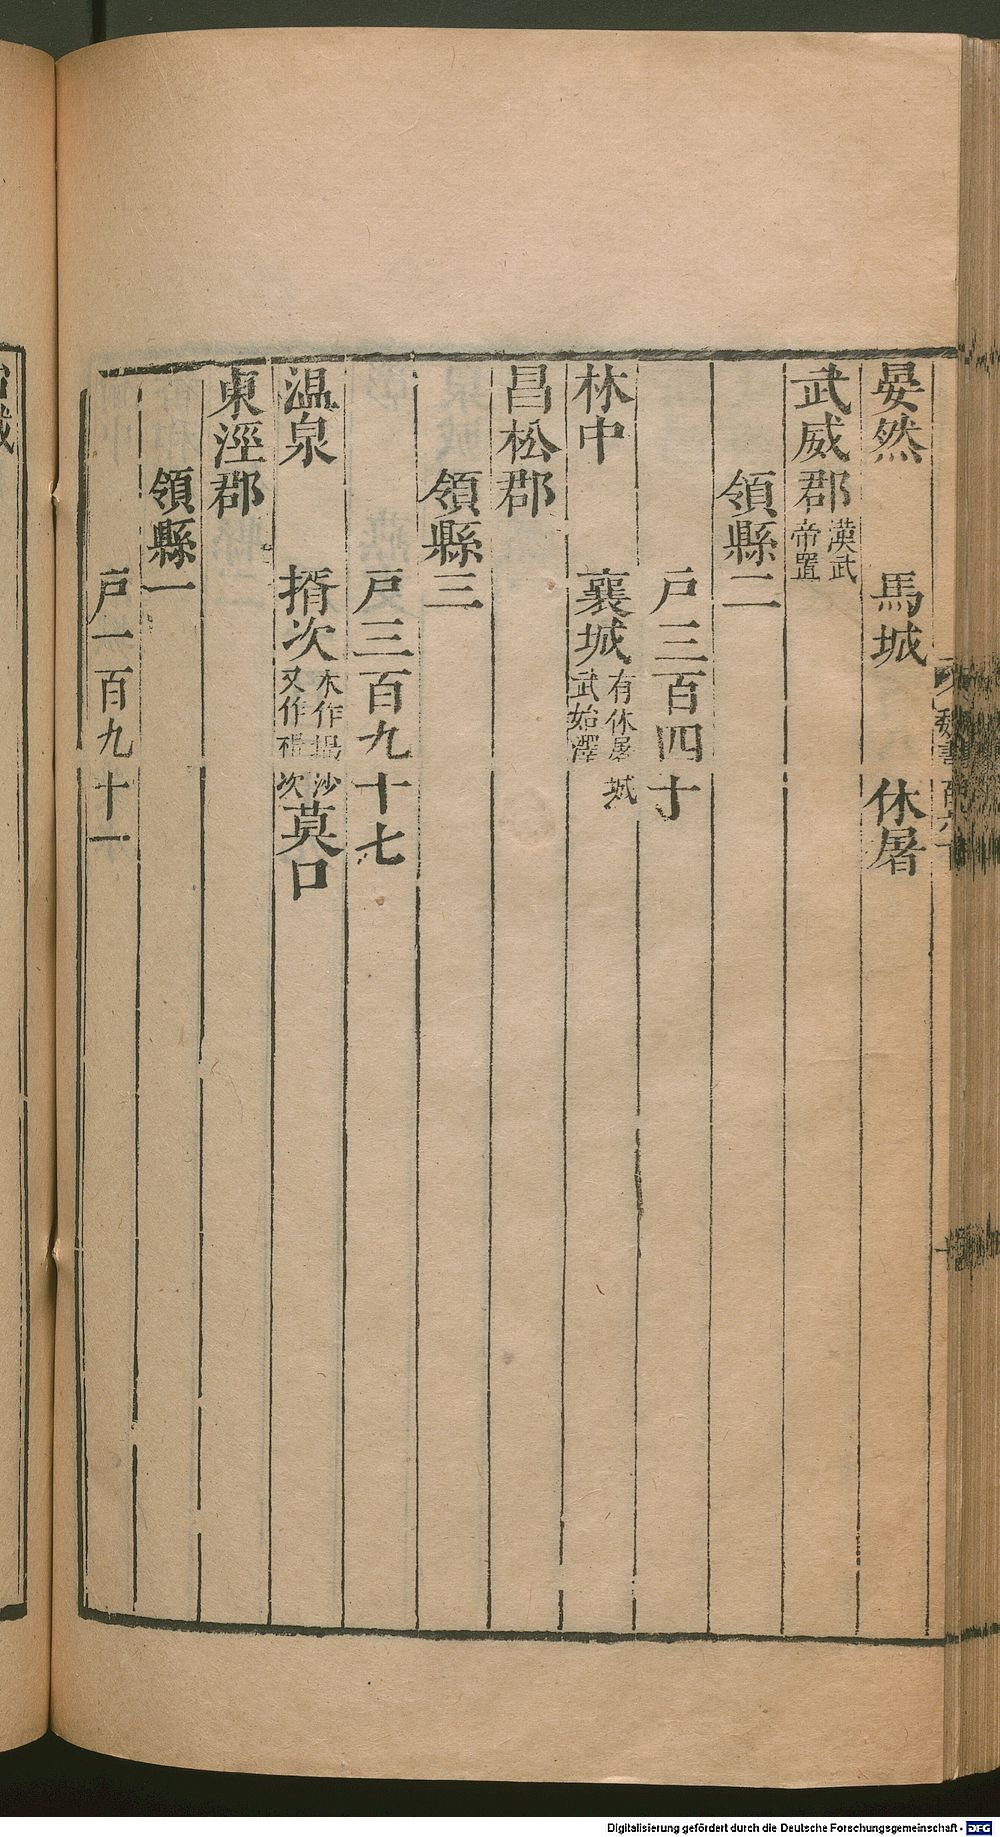 晏然　馬城　休屠
武威郡漢武帝置
領縣二
戶三百四十
林中　襄城有休屠城武始澤
昌松郡
領縣三
戶三百九十七
温泉　揟次　莫口
東涇郡
領縣一
戶一百九十一
Digitalisierung gefördert durch die Deutsche Forschungsgemeinschaft - DFG